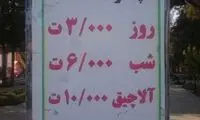 روز ۳/۰۰۰ ت
شب ۶/۰۰۰ ت
آلاچیق ۱۰/۰۰۰ ت